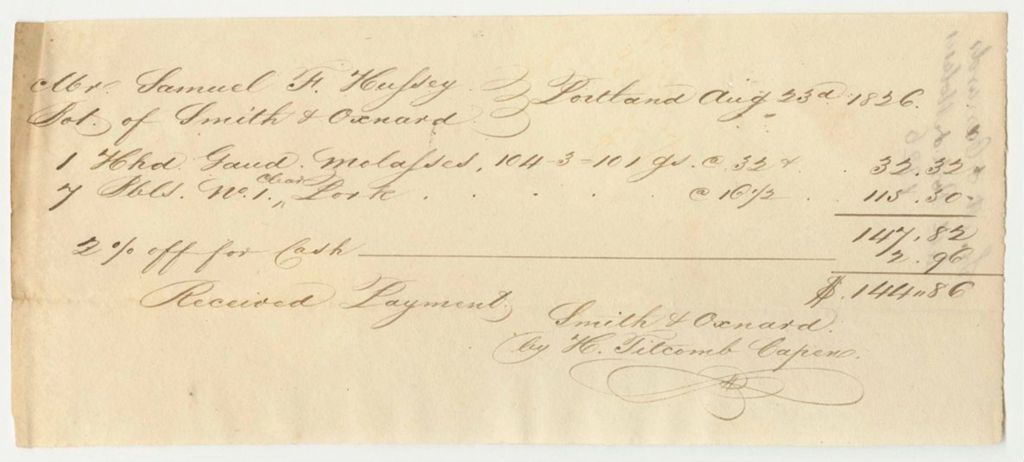 Mr. Samuel F. Hussey Portland Aug 23d 1826.
Bot. of Smith & Oxnard
1 Hhd Gaud. Molasses, 104-3=101 gs. @ 32 . . 32.32
7 Bbls. No. 1. Clear Pork . . . . @ 16½ . . 115.50
147.82
2 % off for Cash 2.96
$.144"86
Received Payment,
Smith & Oxnard.
by H. Titcomb Capen.